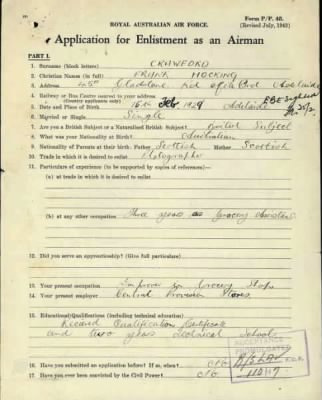 Form P/P. 45.
(Revised July, 1942)
ROYAL AUSTRALIAN AIR FORCE.
Application for Enlistment as an Airman
PART I.
1. Surname (block letters) CRAWFORD
2. Christian Names (in full) FRANK HOCKING
3. Address Gladstone Rd Adelaide
4. Railway or Bus Centre nearest to your address
(Country applicants only)
5. Date and Place of Birth 16th Feb Adelaide
6. Married or Single Single
7. Are you a British Subject or a Naturalised British Subject? British Subject
8. What was your Nationality at Birth? Australian
9. Nationality of Parents at their birth: Father Scottish Mother Scottish
10. Trade in which it is desired to enlist
11. Particulars of experience (to be supported by copies of references)—
(a) at trade in which it is desired to enlist
(b) at any other occupation Three years as Grocery
12. Did you serve an apprenticeship? (Give full particulars)
13. Your present occupation Improver in Grocery Shop
14. Your present employer Central Provision Stores
15. Educational Qualifications (including technical education)
Record Qualification Certificate
and two years technical schools
16. Have you submitted an application before? If so, when?
17. Have you ever been convicted by the Civil Power?
ACCEPTANCE